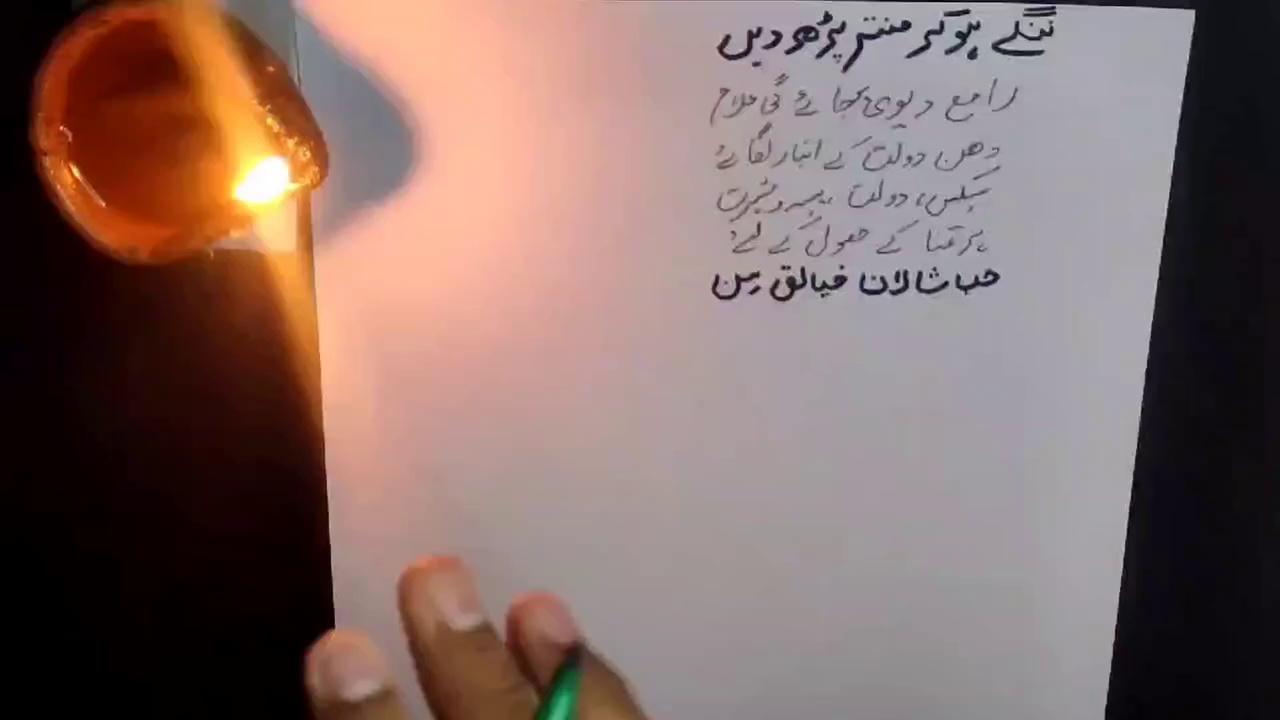 ننگے ہوکر منتر پڑھ دیں
رامع دیوی بجائے گی غلام
دھن دولت کے انبار لگائے
سیکس، دولت، پیسہ و شہرت
ہر تمنا کے حصول کے لئے
حب شالان فیالق سن